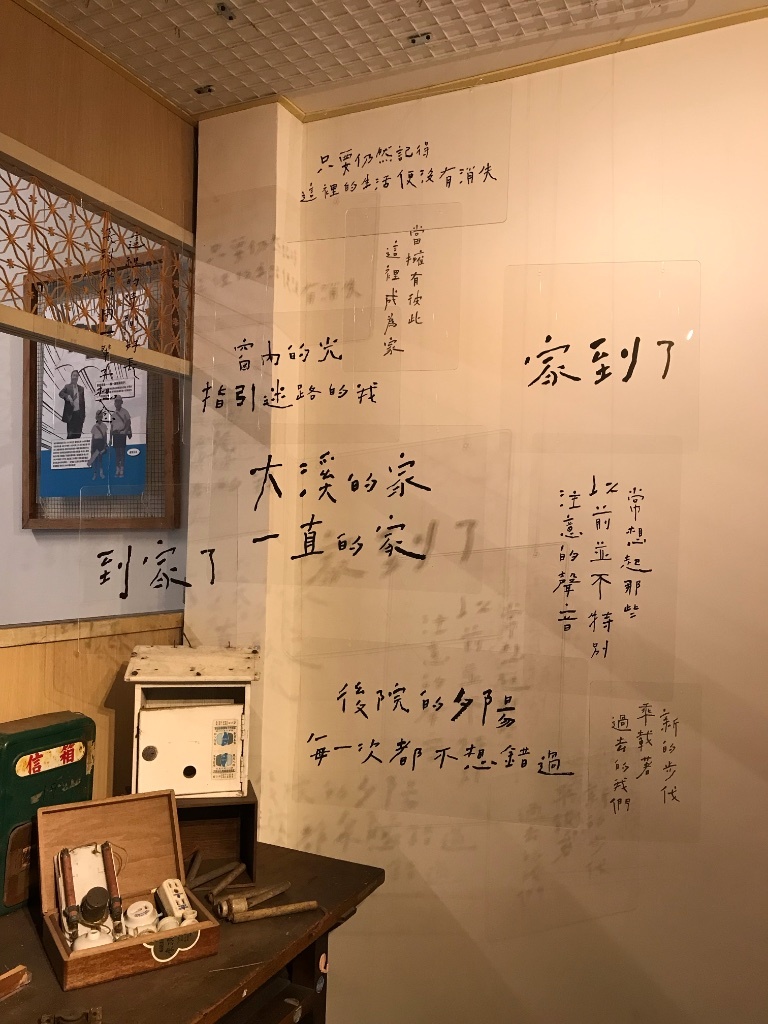 只要仍然記得
這裡的生活便沒有消失
當擁有彼此
這裡成為家
窗內的光
指引迷路的我
家到了
大溪的家
一直的家
到家了
常想起那些
以前並不特別
注意的聲音
後院的夕陽
每一次都不想錯過
新的步伐
乘載著
過去的我們
信箱